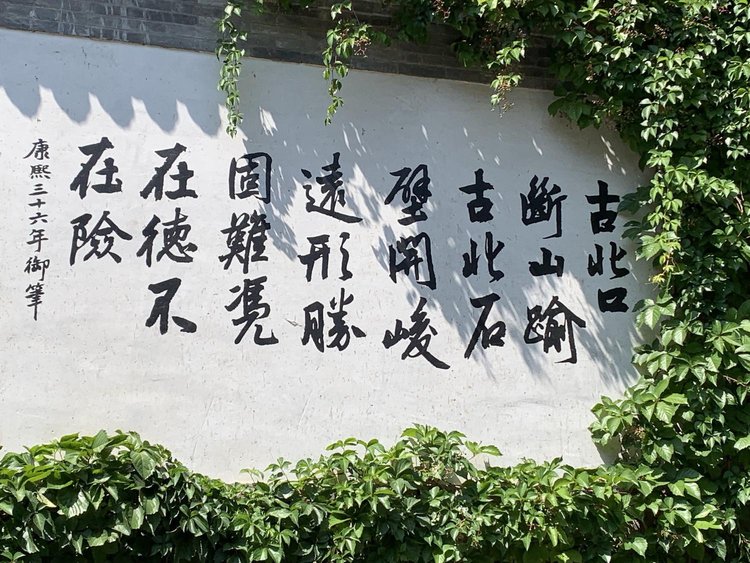 古北口
斷山踰
古北石
壁開峻
遠形勝
固難凴
在德不
在險
康熙三十六年御筆